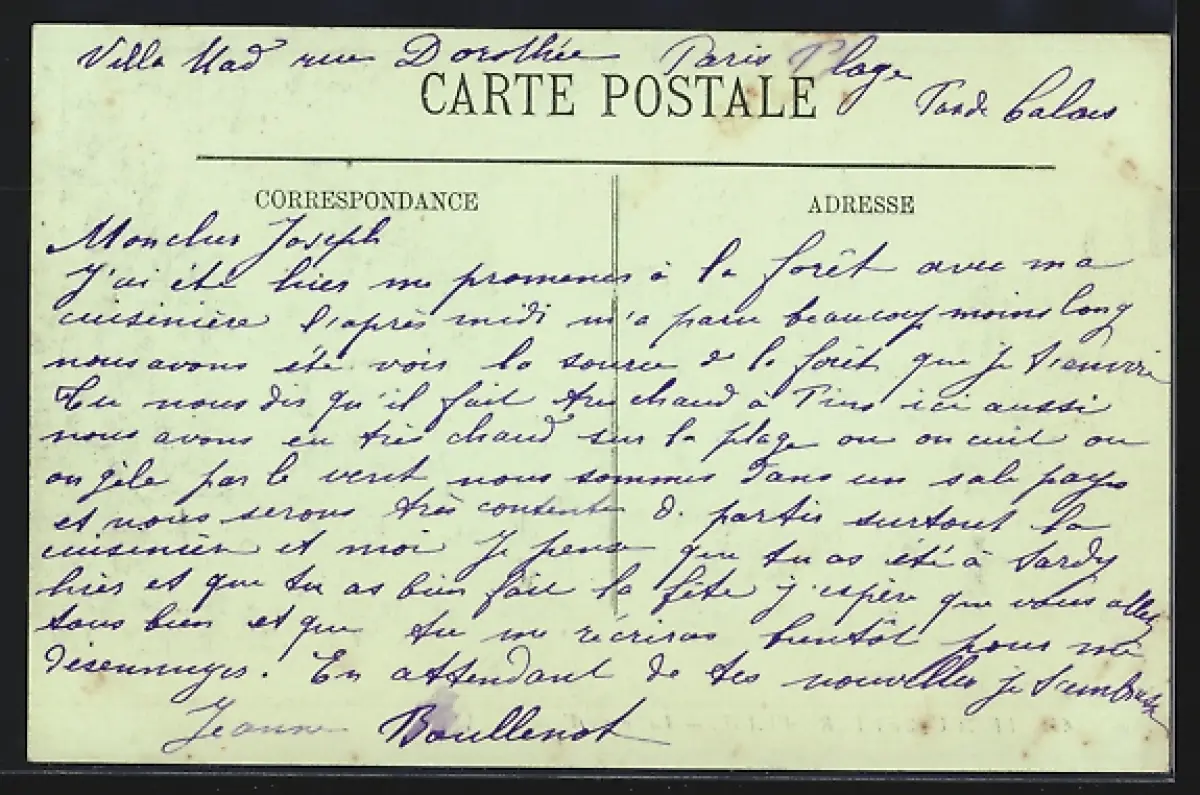 Villa Mad rue Dorothée Paris Plage
Pas de Calais
CARTE POSTALE
CORRESPONDANCE
ADRESSE
Mon cher Joseph
J'ai été hier me promener à la forêt avec ma
cuisinière l'après midi m'a paru beaucoup moins long
nous avons été voir la source de la forêt que je t'envoie
Tu nous dis qu'il fait très chaud à ici aussi
nous avons eu très chaud sur la plage ou on cuit ou
on gèle par le vent nous sommes dans un sale pays
et nous serons très contente de partir surtout la
cuisinière et moi Je pense que tu as été à Sardy
hier et que tu as bien fait la fête j'espère que vous allez
tous bien et que tu me récriras bientôt pour me
désennuyer. En attendant de tes nouvelles je t'embrasse
Jeanne Boullenot